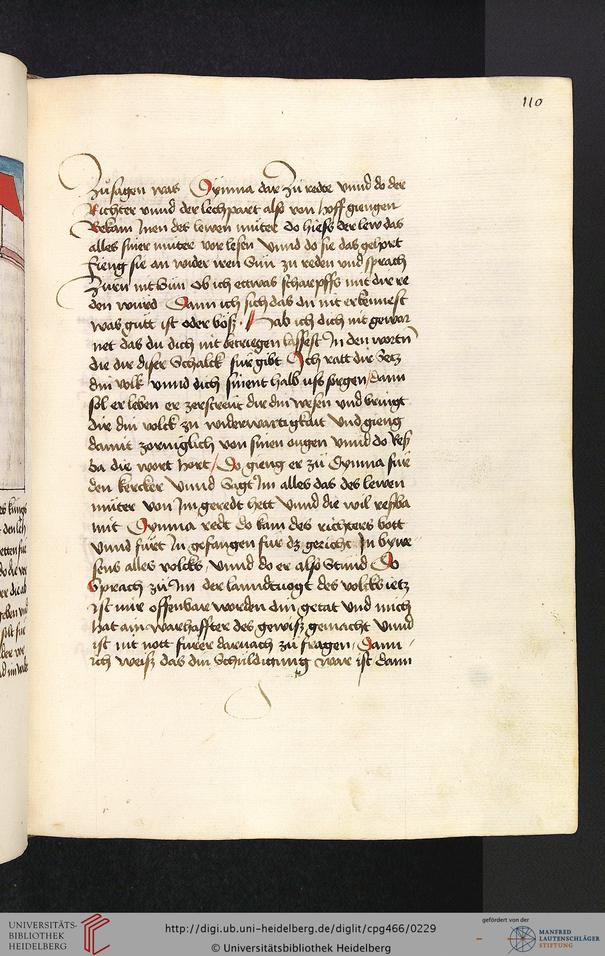 110
Zůsagen was Dymna dar Zů redte vnnd do der
Richter vnnd der lechpart also von hoff giengen
Bekam Inen des lewen můter do hiess der lew das
alles siner můtere vor lesen Vnnd do sie das gehort
fieng sie an wider iren Sůn zu reden vnd sprach
Zürn nit Sůn Ob ich ettwas scharpffs mit dir re
den würd Dann ich sich das du nit erkennest
was gůtt ist oder böß Hab ich dich nit gewar
net das du dich nit betriegen lassest In den worten
die dir diser Schalck für gibt Ich ratt dir Setz
din volk vnnd dich sinent halb uss sorgen / dann
sol er leben er zerstreut dir din wesen vnd bringt
dir din volck zu widerwärtigkait Vnd gieng
damit zorniglich von sinen ougen vnnd do Resß
ba die wort hort / Do gieng er zů Dymna für
den kercker Vnnd Sagt Im alles das des lewen
můter von Im geredt hett Vnnd die wil resßba
mit Dymna redt do kam des richters bott
vnnd fůrt In gefangen für dz gericht In bywe
sens alles volcks / vnnd do er also Stund Do
Sprach zů Im der lanndtuogt des volcks ietz
ist mir offenbare worden din getat Vnd mich
hat ain warhaffter des gewiß gemacht Vnnd
ist nit nott fürer darnach zů fragen / Dann
ich weiß das din Schuldigung war ist dann
UNIVERSITÄTS-
BIBLIOTHEK
HEIDELBERG
http://digi.ub.uni-heidelberg.de/diglit/cpg466/0229
© Universitätsbibliothek Heidelberg
gefördert von der
MANFRED
LAUTENSCHLÄGER
STIFTUNG